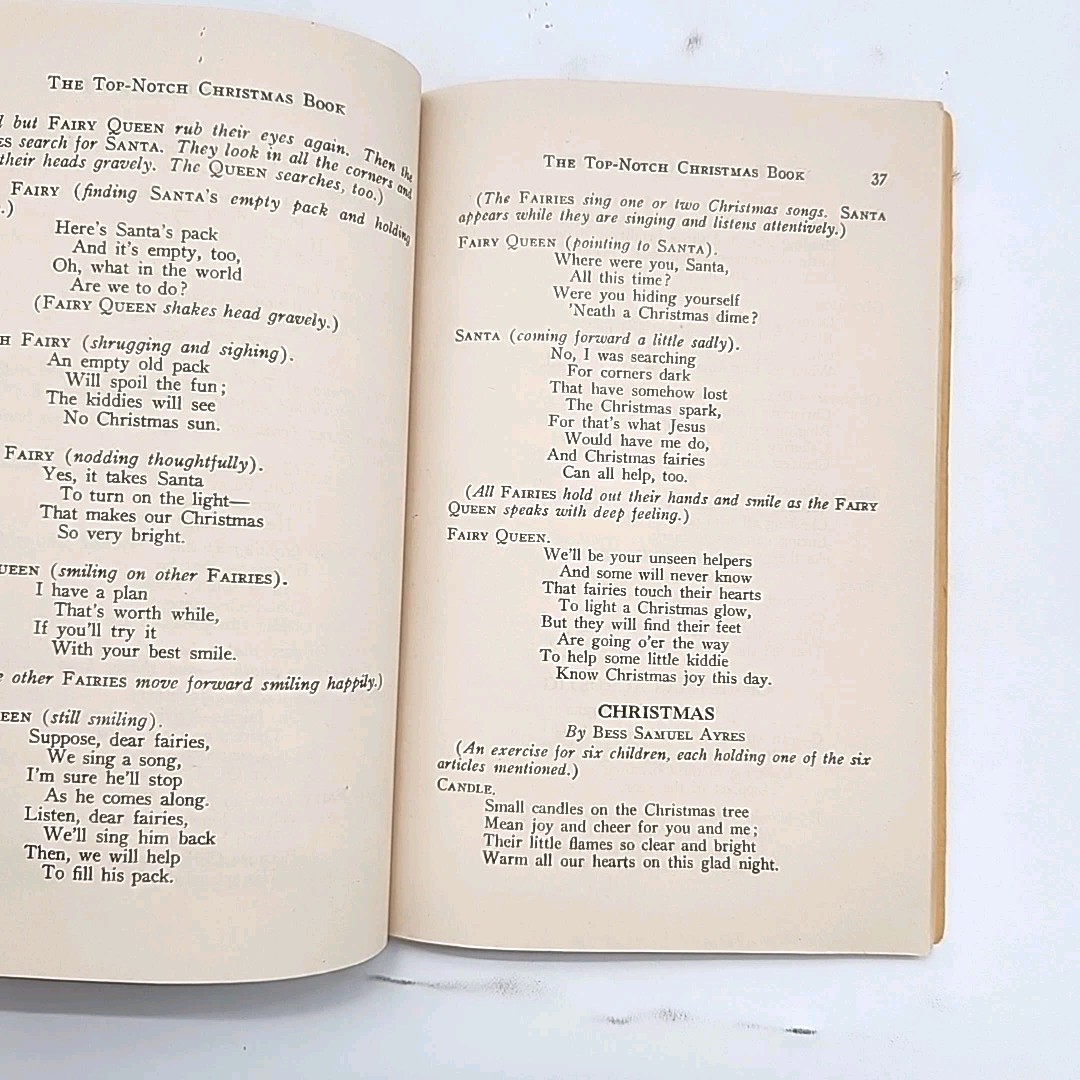 The Top-Notch Christmas Book
but Fairy Queen rub their eyes again. Then the
search for Santa. They look in all the corners and
their heads gravely. The Queen searches, too.)
Fairy (finding Santa's empty pack and holding
.)
Here's Santa's pack
And it's empty, too,
Oh, what in the world
Are we to do?
(Fairy Queen shakes head gravely.)
Fairy (shrugging and sighing).
An empty old pack
Will spoil the fun;
The kiddies will see
No Christmas sun.
Fairy (nodding thoughtfully).
Yes, it takes Santa
To turn on the light—
That makes our Christmas
So very bright.
(smiling on other Fairies).
I have a plan
That's worth while,
If you'll try it
With your best smile.
other Fairies move forward smiling happily.)
(still smiling).
Suppose, dear fairies,
We sing a song,
I'm sure he'll stop
As he comes along.
Listen, dear fairies,
We'll sing him back
Then, we will help
To fill his pack.
The Top-Notch Christmas Book 37
(The Fairies sing one or two Christmas songs. Santa
appears while they are singing and listens attentively.)
Fairy Queen (pointing to Santa).
Where were you, Santa,
All this time?
Were you hiding yourself
'Neath a Christmas dime?
Santa (coming forward a little sadly).
No, I was searching
For corners dark
That have somehow lost
The Christmas spark,
For that's what Jesus
Would have me do,
And Christmas fairies
Can all help, too.
(All Fairies hold out their hands and smile as the Fairy
Queen speaks with deep feeling.)
Fairy Queen.
We'll be your unseen helpers
And some will never know
That fairies touch their hearts
To light a Christmas glow,
But they will find their feet
Are going o'er the way
To help some little kiddie
Know Christmas joy this day.
CHRISTMAS
By Bess Samuel Ayres
(An exercise for six children, each holding one of the six
articles mentioned.)
Candle.
Small candles on the Christmas tree
Mean joy and cheer for you and me;
Their little flames so clear and bright
Warm all our hearts on this glad night.